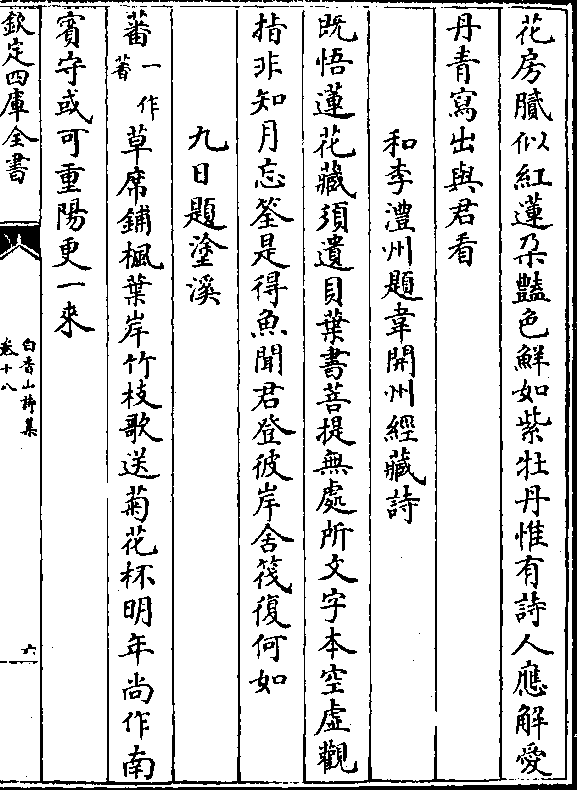 花房膩似紅蓮朶豔色鮮如紫牡丹惟有詩人應解愛
丹青寫出與君看
和李澧州題韋開州經藏詩
既悟蓮花藏須遺貝葉書菩提無處所文字本空虚觀
指非知月忘筌是得魚聞君登彼岸舍筏復何如
九日題塗溪
蕃一作著草席鋪楓葉岸竹枝歌送菊花杯明年尚作南
賓守或可重陽更一來
欽定四庫全書
白香山詩集
卷十八
六